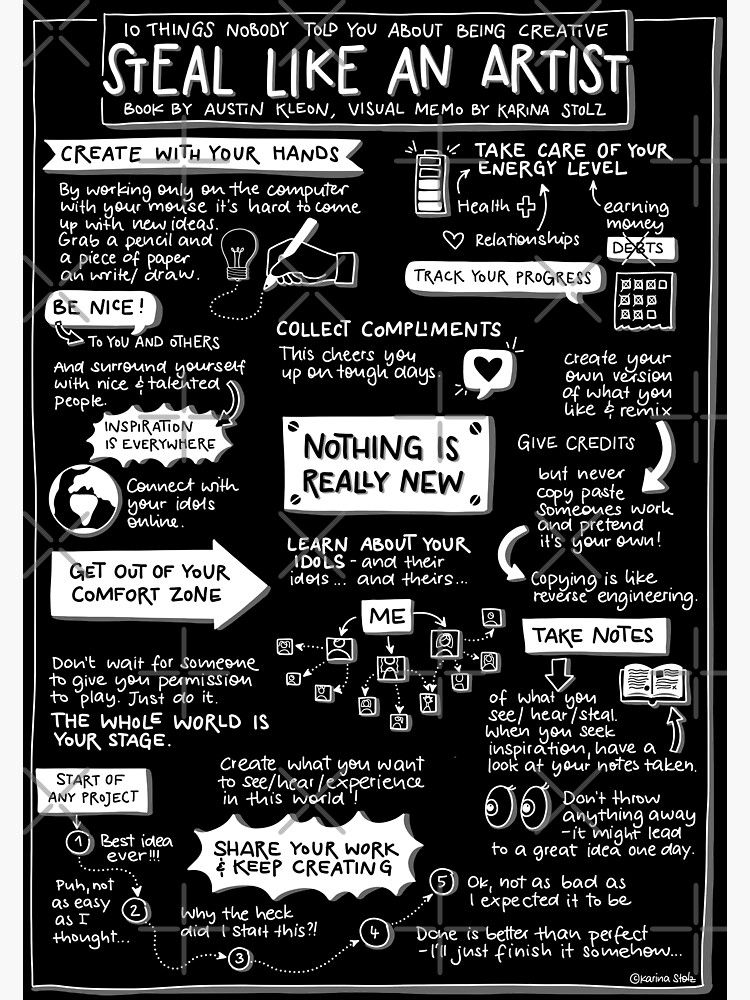 10 THINGS NOBODY TOLD YOU ABOUT BEING CREATIVE
STEAL LIKE AN ARTIST
BOOK BY AUSTIN KLEON, VISUAL MEMO BY KARINA STOLZ
CREATE WITH YOUR HANDS
By working only on the computer
with your mouse it's hard to come
up with new ideas.
Grab a pencil and
a piece of paper
an write/ draw.
TAKE CARE OF YOUR
ENERGY LEVEL
Health
earning
money
Relationships
DEBTS
TRACK YOUR PROGRESS
BE NICE!
TO YOU AND OTHERS
And surround yourself
with nice & talented
people.
COLLECT COMPLIMENTS
This cheers you
up on tough days.
create your
own version
of what you
like & remix
INSPIRATION
IS EVERYWHERE
Connect with
your idols
online.
NOTHING IS
REALLY NEW
GIVE CREDITS
but never
copy paste
someones work
and pretend
it's your own!
Copying is like
reverse engineering.
GET OUT OF YOUR
COMFORT ZONE
LEARN ABOUT YOUR
IDOLS - and their
idols... and theirs...
ME
TAKE NOTES
of what you
see/ hear/steal.
When you seek
inspiration, have a
look at your notes taken.
Don't wait for someone
to give you permission
to play. Just do it.
THE WHOLE WORLD IS
YOUR STAGE.
Create what you want
to see/hear/experience
in this world!
Don't throw
anything away
-it might lead
to a great idea one day.
START OF
ANY PROJECT
SHARE YOUR WORK
& KEEP CREATING
1 Best idea
ever!!!
Puh, not
as easy
as I
thought...
2
Why the heck
did I start this?!
3
4
Done is better than perfect
-I'll just finish it somehow...
5 Ok, not as bad as
I expected it to be
©Karina Stolz